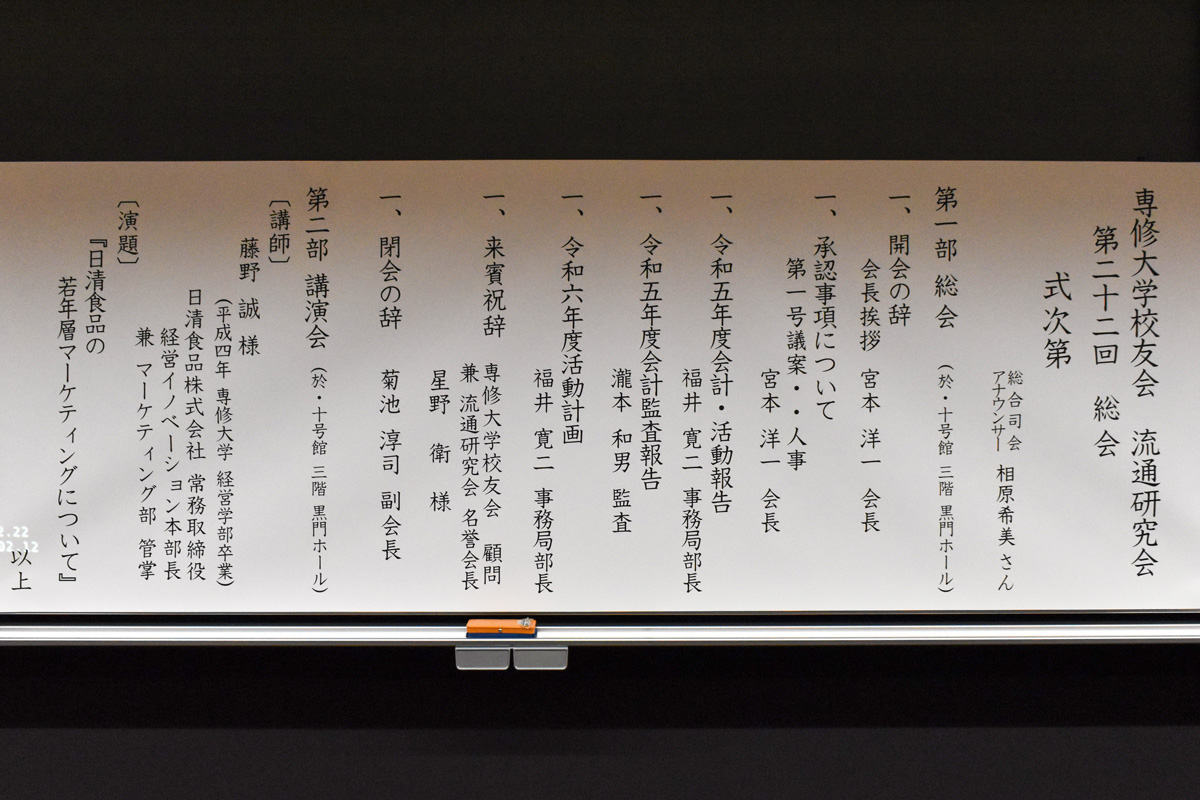 専修大学校友会 流通研究会
第二十二回 総会
式次第
総合司会
アナウンサー 相原希美さん
第一部 総会 (於・十号館 三階 黒門ホール)
一、開会の辞
会長挨拶 宮本 洋一 会長
一、承認事項について
第一号議案・・人事
宮本 洋一 会長
一、令和五年度会計・活動報告
福井 寛二 事務局部長
一、令和五年度会計監査報告
瀧本 和男 監査
一、令和六年度活動計画
福井 寛二 事務局部長
一、来賓祝辞 専修大学校友会 顧問
兼 流通研究会 名誉会長
星野 衛 様
一、閉会の辞 菊池 淳司 副会長
第二部 講演会 (於・十号館 三階 黒門ホール)
〔講師〕
藤野 誠 様
(平成四年 専修大学 経営学部卒業)
日清食品株式会社 常務取締役
経営イノベーション本部長
兼 マーケティング部 管掌
〔演題〕
『日清食品の
若年層マーケティングについて』
以上